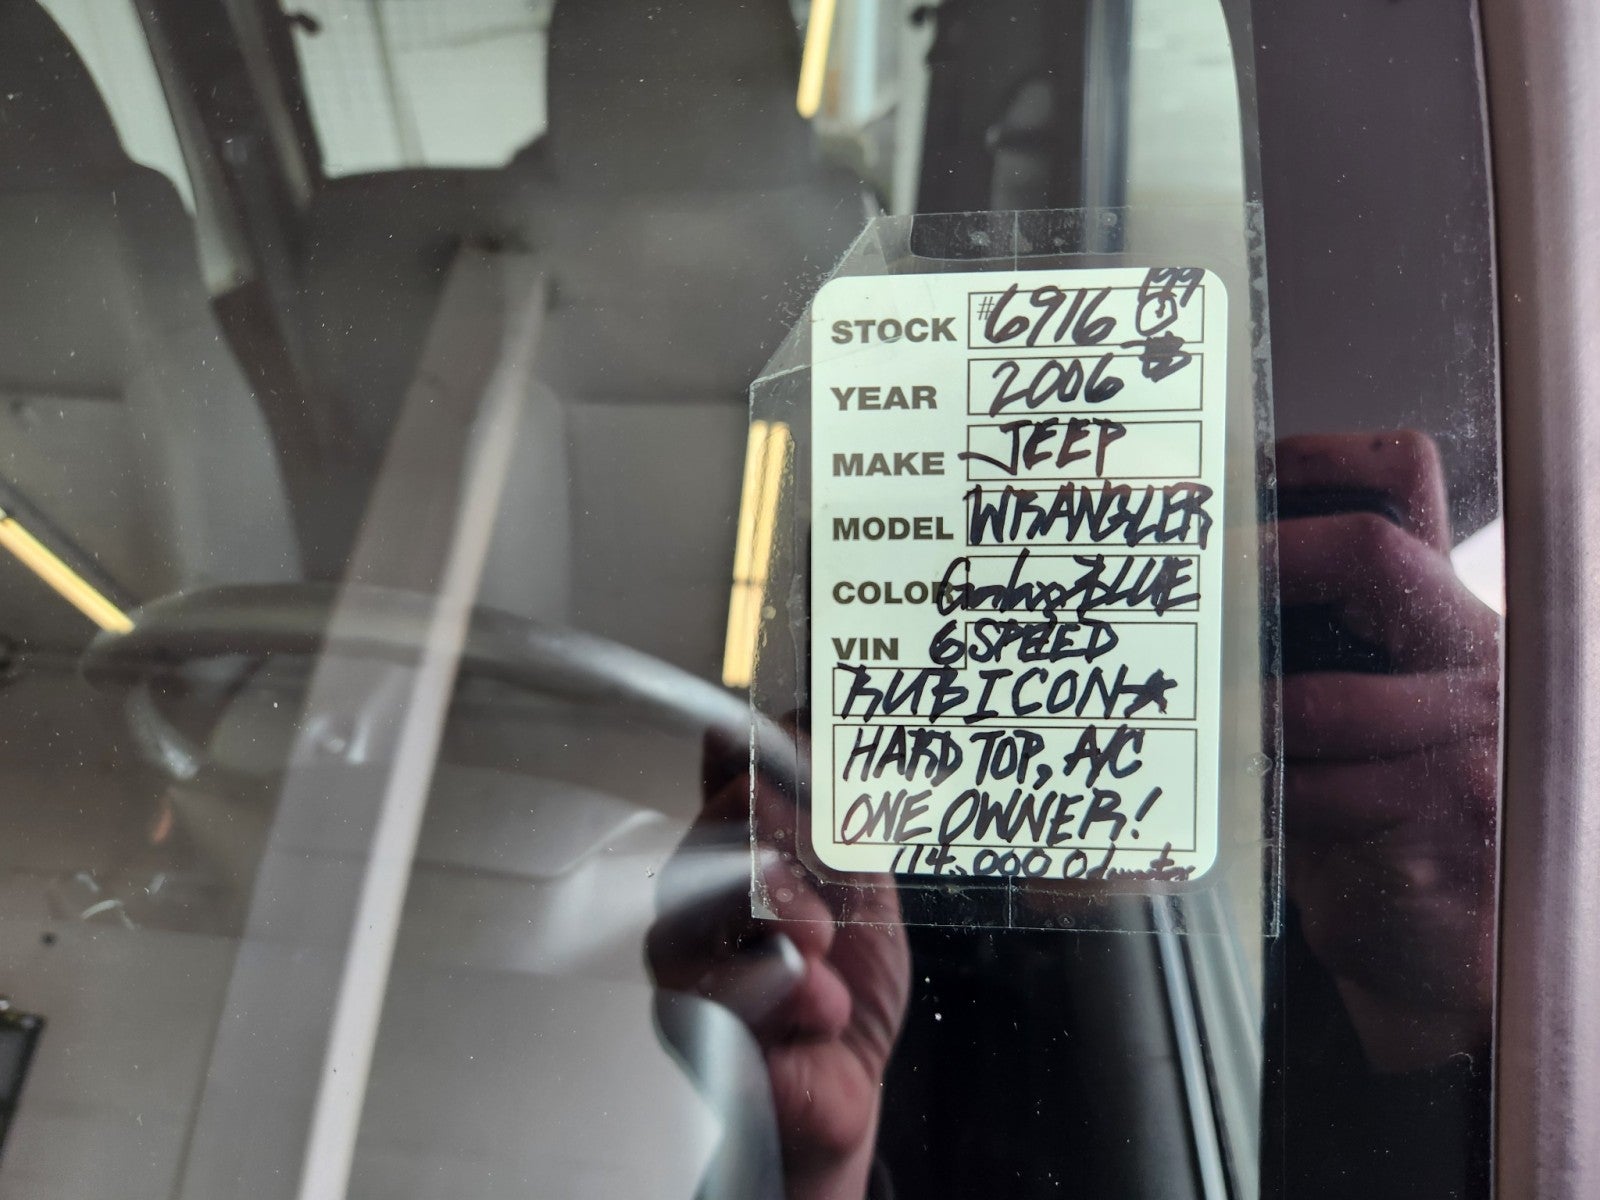 STOCK #6916
YEAR 2006
MAKE JEEP
MODEL WRANGLER
COLOR BLUE
VIN 6 SPEED
RUBICON★
HARD TOP, A/C
ONE OWNER!
114,000 Odometer